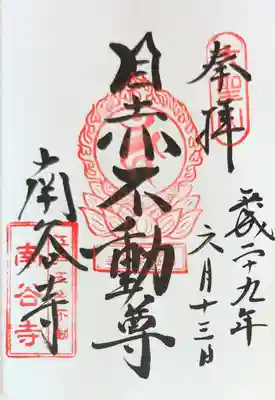 奉拝
平成二十九年
六月十三日
目赤不動尊
南谷寺
南谷寺